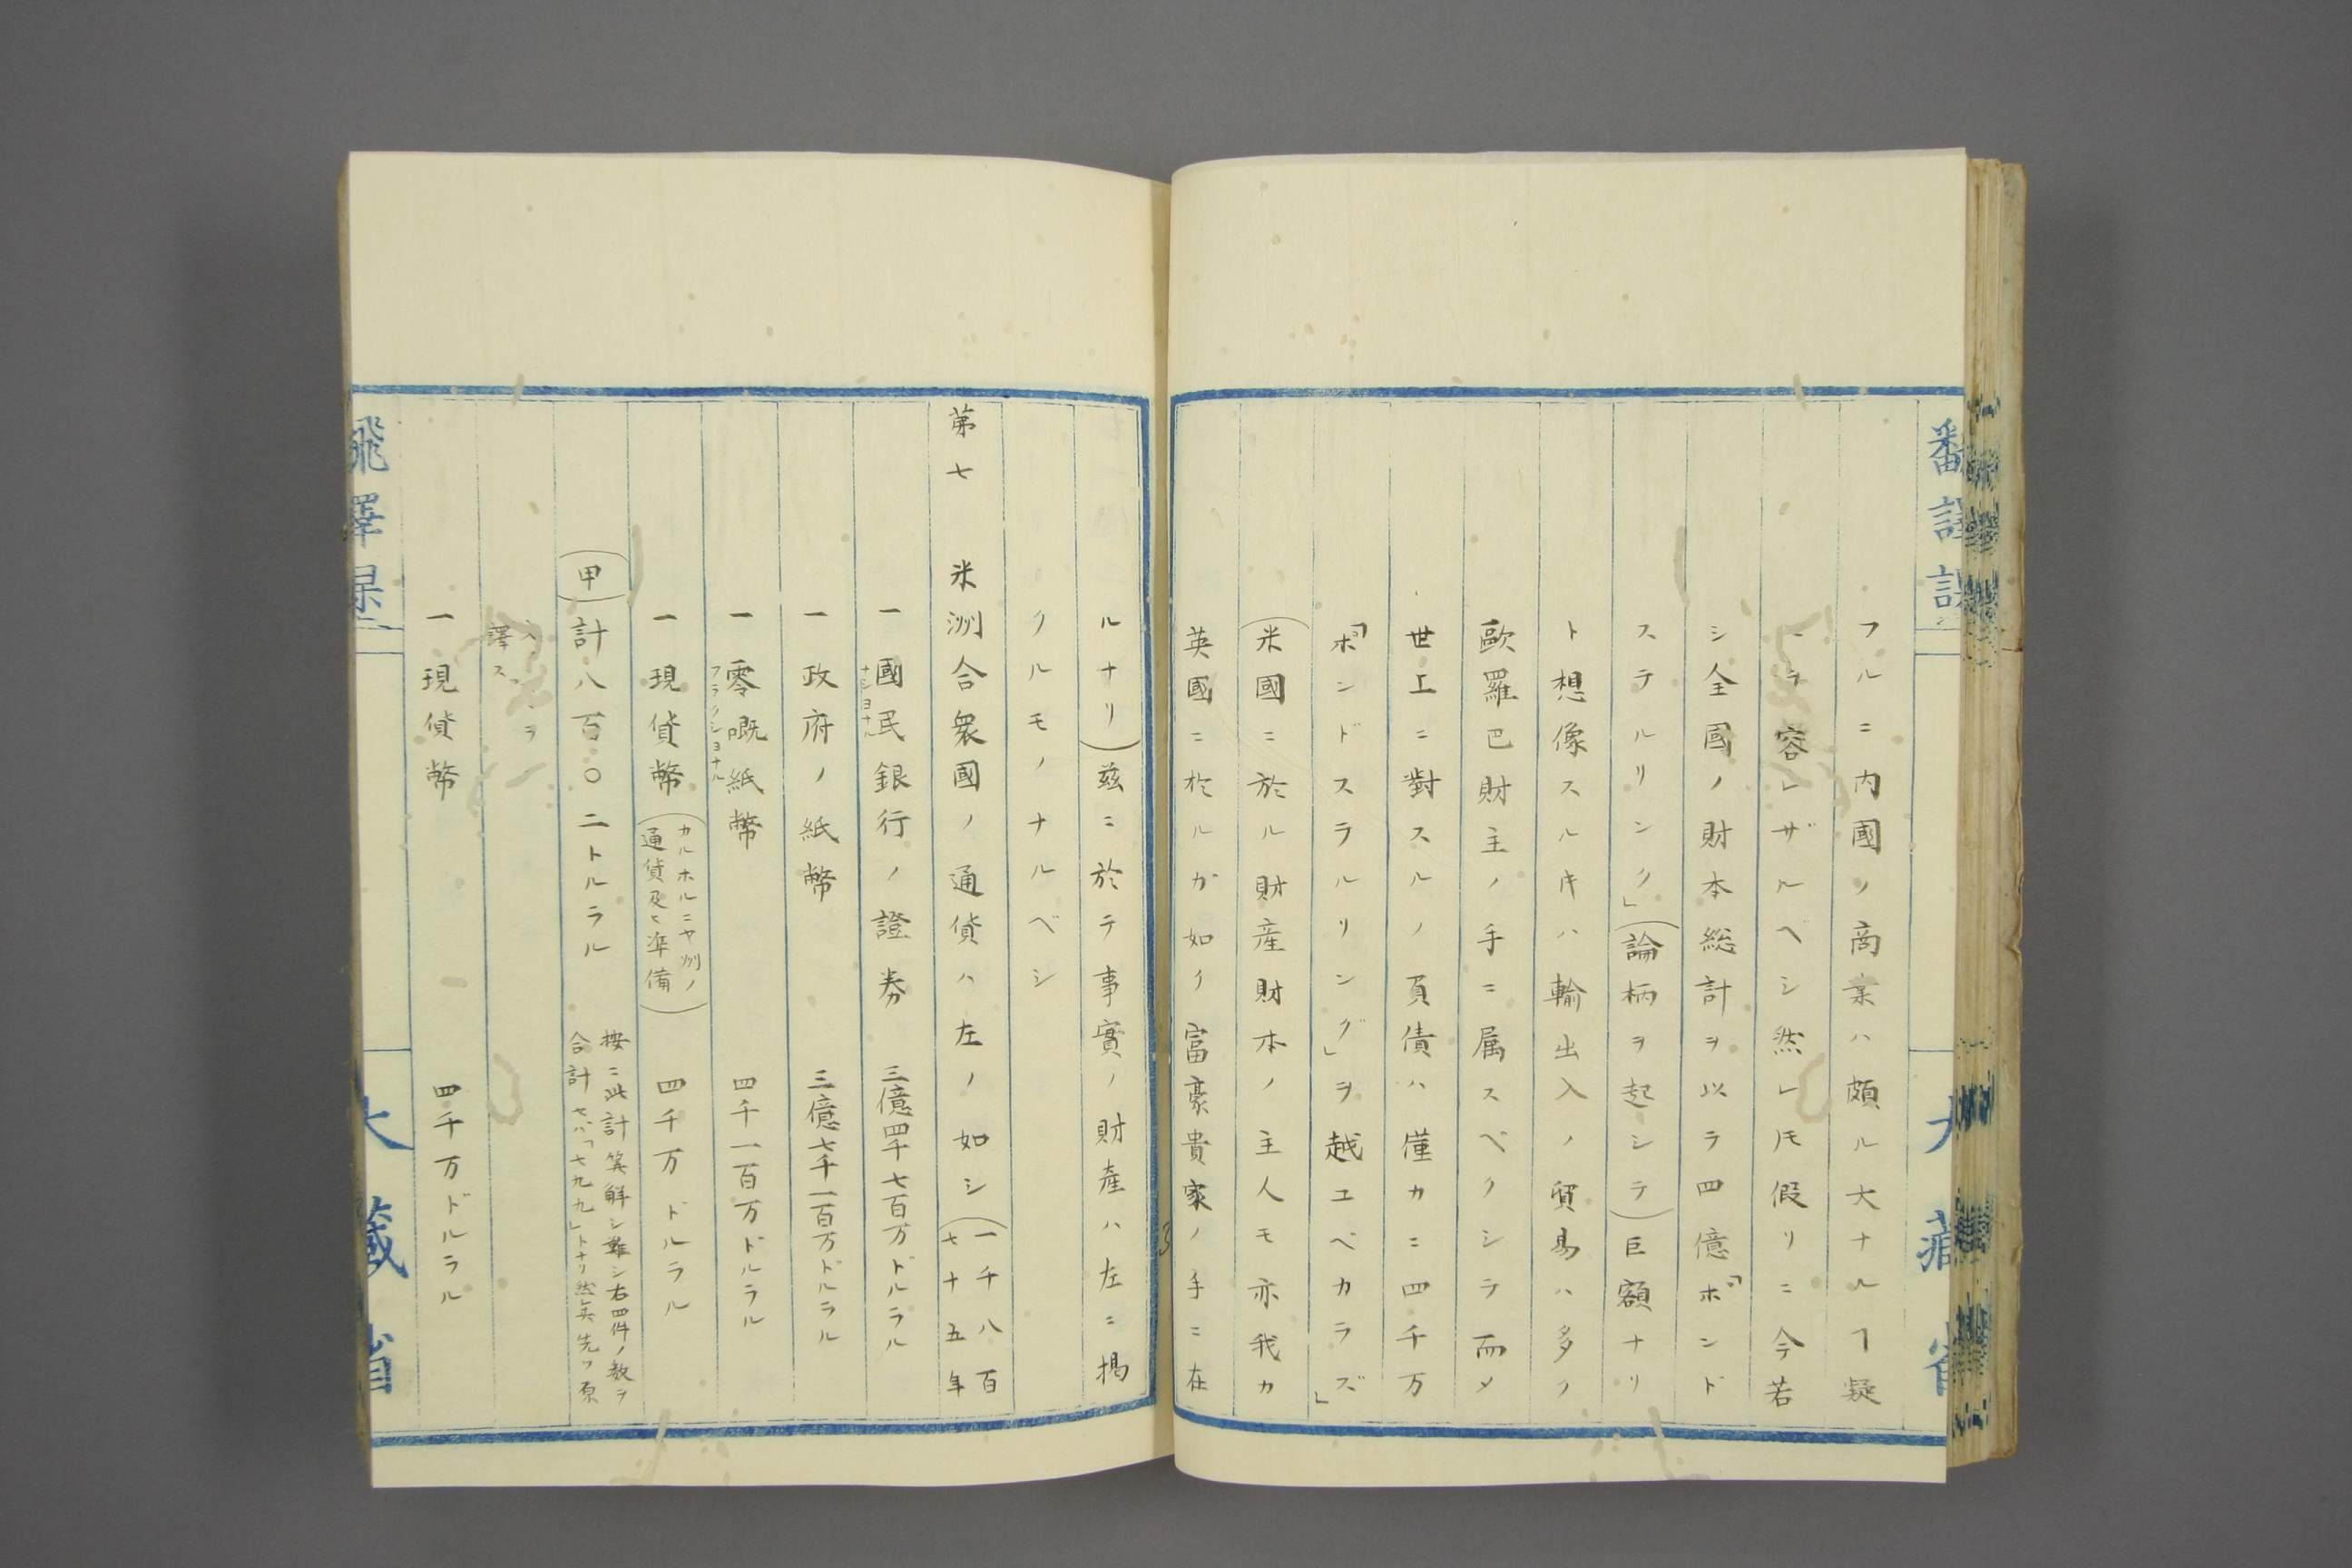 フルニ内國ノ商業ハ頗ル大ナルヿ疑
ヲ容レザルベシ然レ𪜈假リニ今若
シ全國ノ財本総計ヲ以テ四億「ポンド
ステルリンク」(論柄ヲ起シテ)巨額ナリ
ト想像スルキハ輸出入ノ貿易ハ多ク
歐羅巴財主ノ手ニ属スベクシテ而メ
世上ニ對スルノ負債ハ僅カニ四千万
「ポンドスラルリング」ヲ越エベカラズ」
(米國ニ於ル財産財本ノ主人モ亦我カ
英國ニ於ルガ如ク富豪貴家ノ手ニ在
ルナリ)茲ニ於テ事實ノ財產ハ左ニ揭
クルモノナルベシ
第七 米洲合衆國ノ通貨ハ左ノ如シ(一千八百
七十五年
一國民銀行ノ證券 三億四千七百万ドルラル
ナショナル
一政府ノ紙幣 三億七千一百万ドルラル
一零嘅紙幣 四千一百万ドルラル
フラクショナル
一現貨幣(カルホルニヤ州ノ
通貨及ヒ準備) 四千万ドルラル
(甲)計八百〇二トルラル 按ニ此計筭解シ難シ右四件ノ数ヲ
合計セバ「七九九」トナリ然矣先ツ原
譯ス
一現貨幣 四千万ドルラル
大藏省